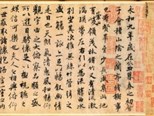 和九年歲在癸丑暮春之初
于會稽山陰之蘭亭脩稧事
也群賢畢至少長咸集此地
有崇山峻領茂林脩竹又有清流激
湍暎帶左右引以為流觴曲水
列坐其次雖無絲竹管弦之
盛一觴一詠亦足以暢敘幽情
是日也天朗氣清惠風和暢仰
觀宇宙之大俯察品類之盛
所以遊目騁懷足以極視聽之
娛信可樂也夫人之相與俯仰